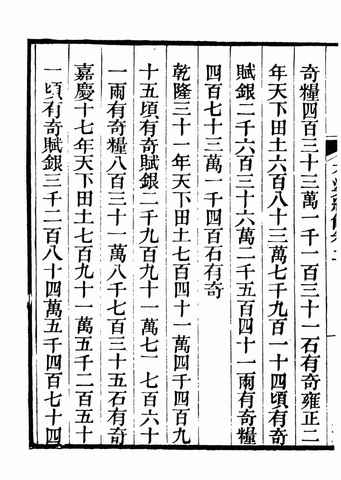 奇糧四百三十三萬一千一百三十一石有奇雍正二
年天下田土六百八十三萬七千九百一十四頃有奇
賦銀二千六百三十六萬二千五百四十一兩有奇糧
四百七十三萬一千四百石有奇
乾隆三十一年天下田土七百四十一萬四千四百九
十五頃有奇賦銀二千九百九十一萬七一七百六十
一兩有奇糧八百三十一萬八千七百三十五石有奇
嘉慶十七年天下田土七百九十一萬五千二百五十
一頃有奇賦銀三千二百八十四萬五千四百七十四